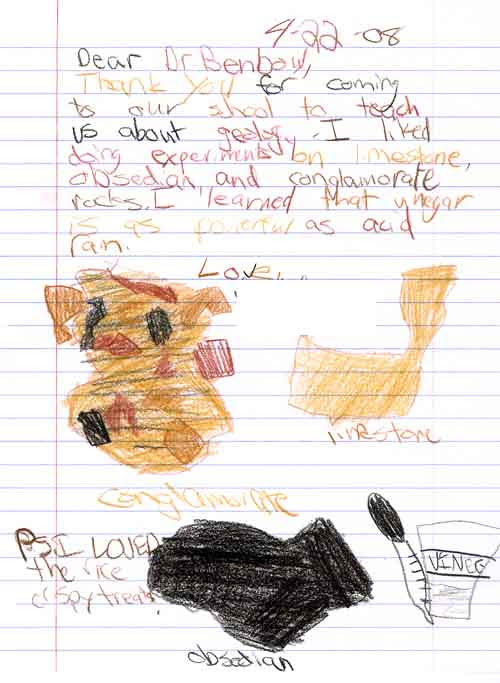 4-22-08
Dear Dr Benbow,
Thank You for coming
to our shool to teach
us about geology. I liked
doing experiments on limestone,
obsedian, and conglamorate
rocks. I learned that vinegar
is as powerful as acid
rain.
Love,...
limestone
conglamorate
P.S. I LOVED
the rice
crispy treats.
VINEG
obsedian